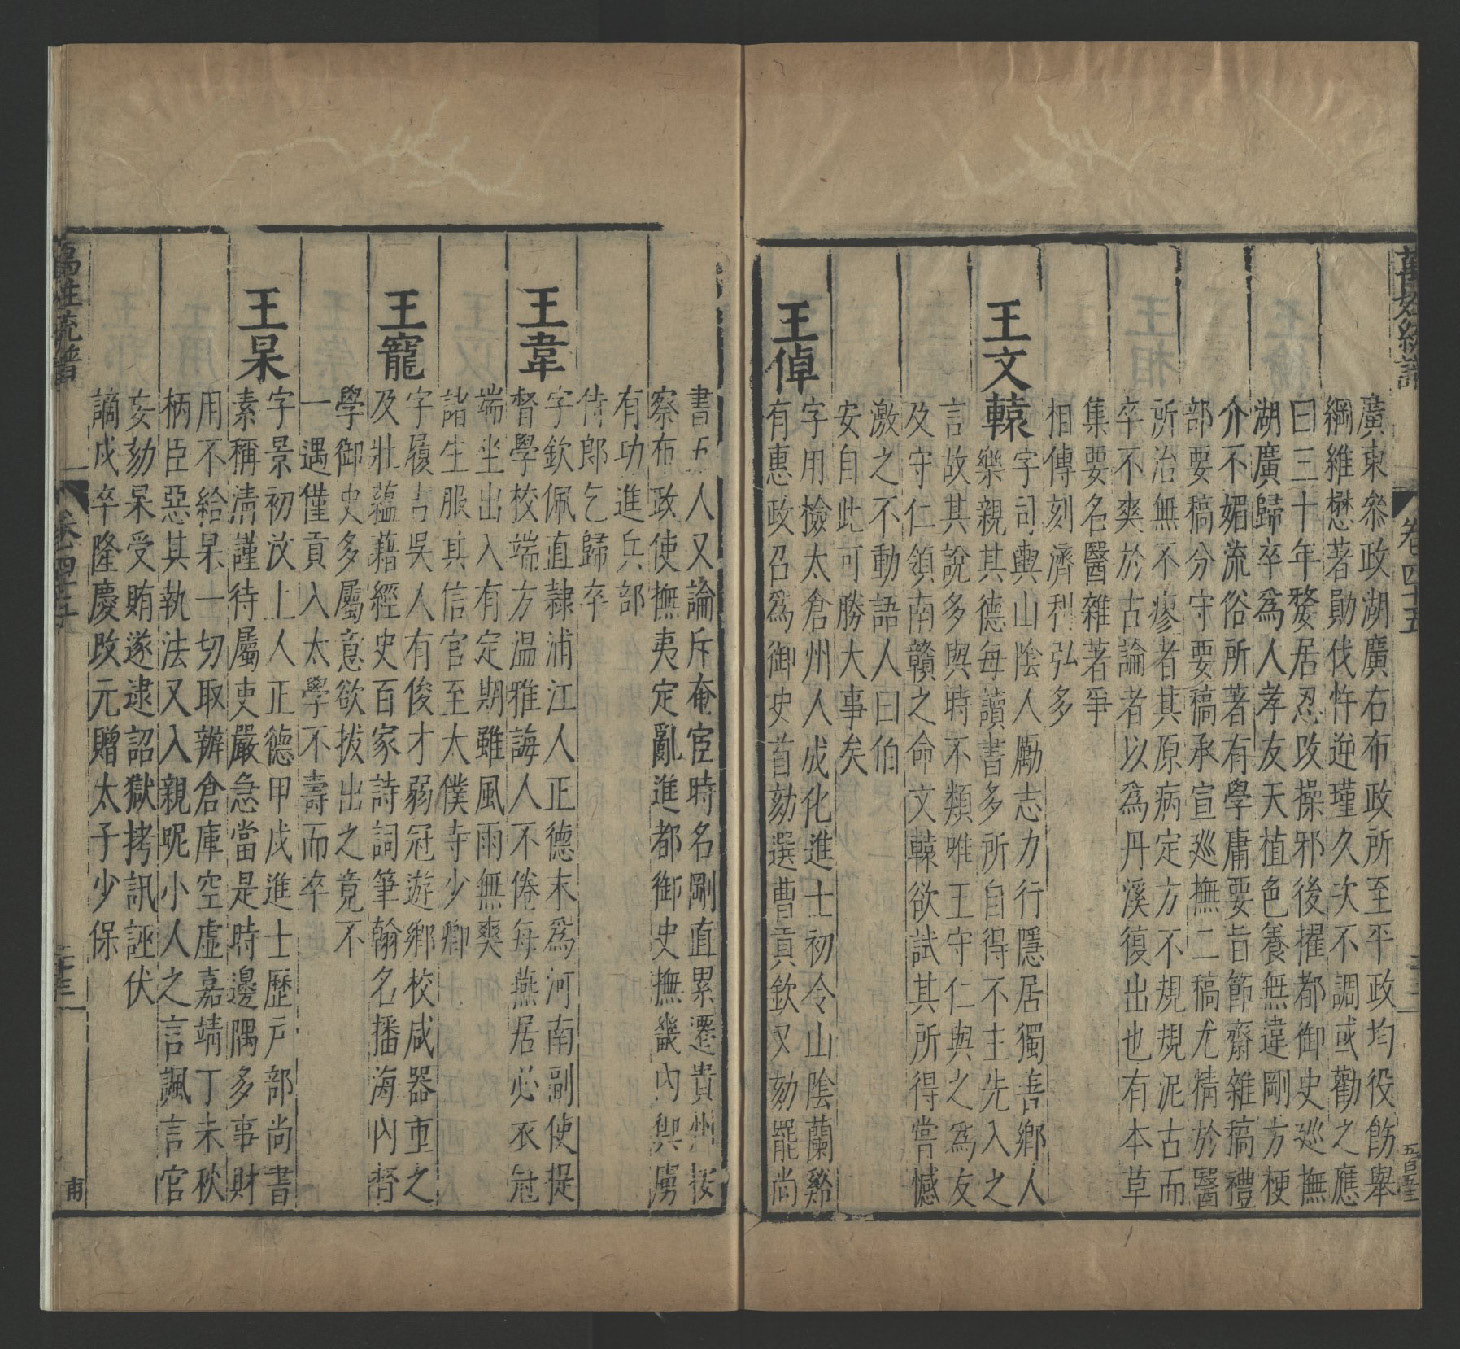 萬姓統譜
卷四十五
廣東叅政湖廣右布政所至平政均役飭舉
綱維懋著勛伐忤逆瑾久次不調或勸之應
曰三十年嫠居忍改操邪後擢都御史巡撫
湖廣歸卒爲人孝友天植色養無違剛方梗
介不媚流俗所著有學庸要旨節齋雜稿禮
部要稿分守要稿承宣巡撫二稿尤精於醫
所治無不瘳者其原病定方不規規泥古而
卒不爽於古論者以爲丹溪復出也有本草
集要名醫雜著爭
相傳刻濟利弘多
王文轅
字司輿山陰人勵志力行隱居獨善鄉人
樂親其德每讀書多所自得不主先入之
言故其說多與時不類唯王守仁與之爲友
及守仁領南贛之命文轅欲試其所得嘗憾
激之不動語人曰伯
安自此可勝大事矣
王倬
字用檢太倉州人成化進士初令山陰蘭谿
有惠政召爲御史首劾選曹貢欽又劾罷尚
書五人又論斥奄宦時名剛直累遷貴州按
察布政使撫夷定亂進都御史撫畿內與虜
有功進兵部
侍郎乞歸卒
王韋
字欽佩直隸浦江人正德末爲河南副使提
督學校端方溫雅誨人不倦每燕居必衣冠
端坐出入有定期雖風雨無爽
諸生服其信官至太僕寺少卿
王寵
字履吉吳人有俊才弱冠遊鄉校咸器重之
及壯蘊藉經史百家詩詞筆翰名播海內督
學御史多屬意欲拔出之竟不
一遇僅貢入太學不壽而卒
王杲
字景初汶上人正德甲戌進士歷戶部尚書
素稱清謹待屬吏嚴急當是時邊隅多事財
用不給杲一切取辦倉庫空虛嘉靖丁未秋
柄臣惡其執法又入親昵小人之言諷言官
妄劾杲受賄遂逮詔獄拷訊誣伏
謫戍卒隆慶改元贈太子少保
萬姓統譜
卷四十五